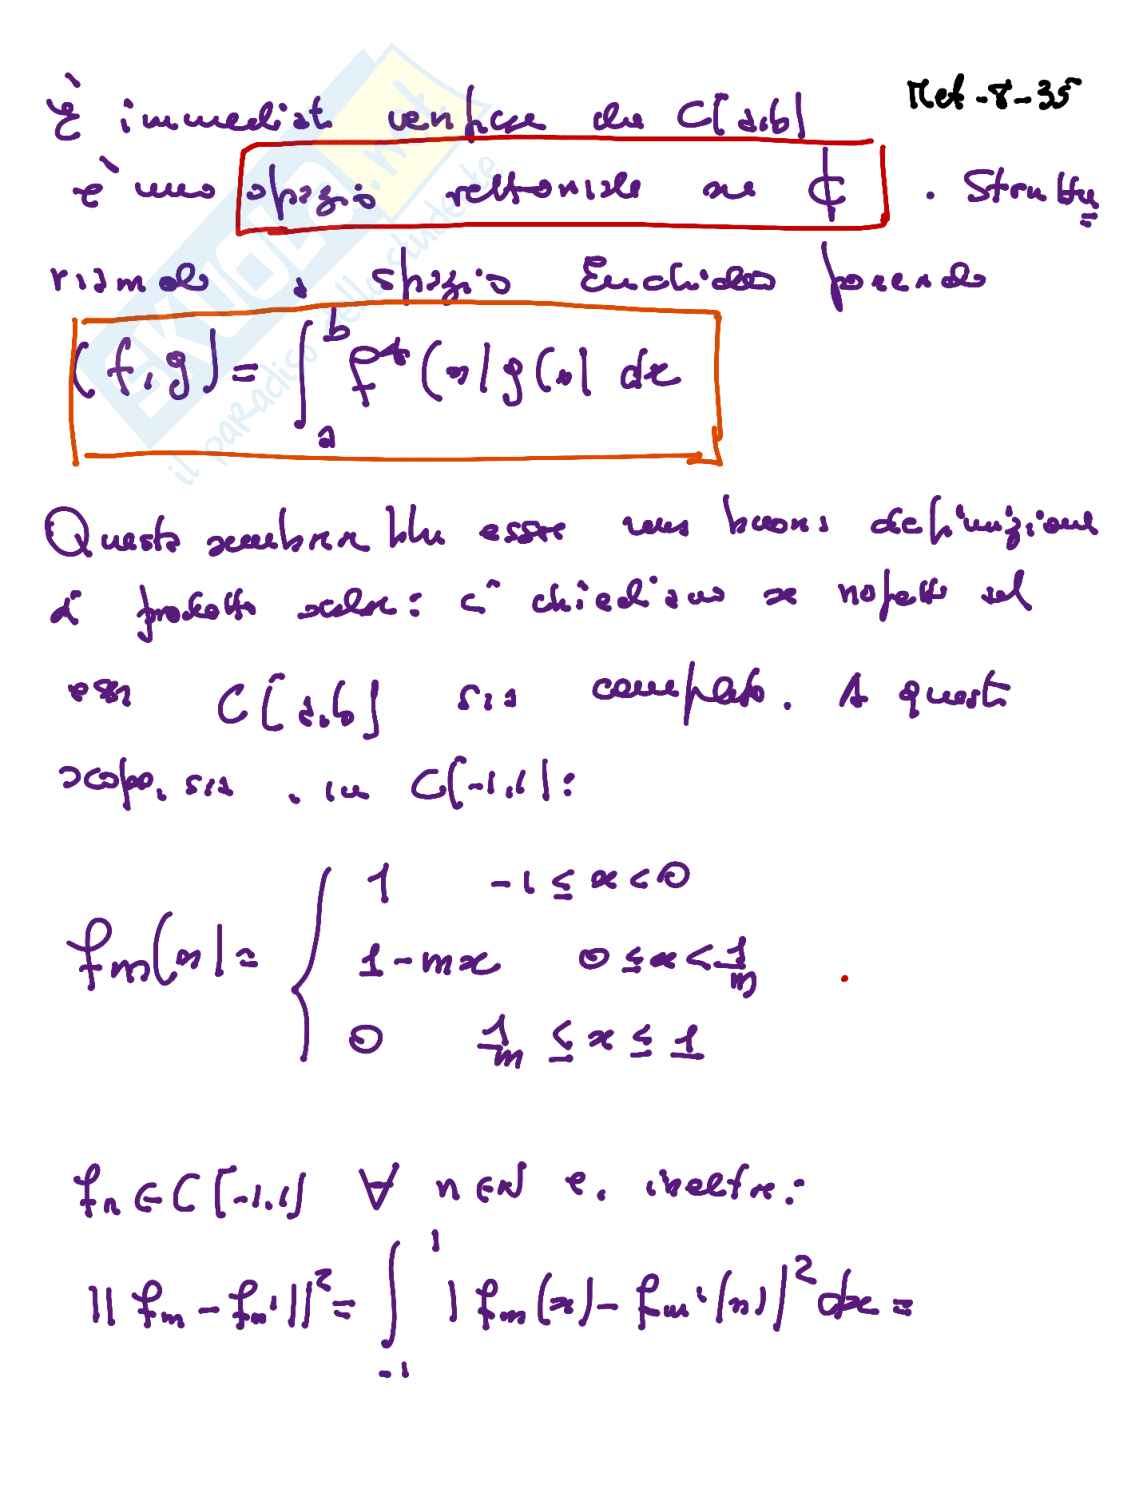 Met-8-35
È immediato verificare che C[a,b]
è uno spazio vettoriale su ₵. Struttu
riamolo a spazio Euclideo ponendo
(f,g) = ∫_a^b f*(x) g(x) dx
Questa sembrerebbe essere una buona definizione
di prodotto scalare: ci chiediamo se rispetto ad
essa C[a,b] sia completo. A questo
scopo, sia, in C[-1,1]:
f_n(x) = { 1    -1 ≤ x < 0
1 - nx    0 ≤ x < 1/n
0    1/n ≤ x ≤ 1
f_n ∈ C[-1,1] ∀ n ∈ N e, inoltre:
|| f_n - f_n' ||² = ∫_{-1}^1 | f_n(x) - f_n'(x) |² dx =
SKUOLA.net
il paradiso dello studente